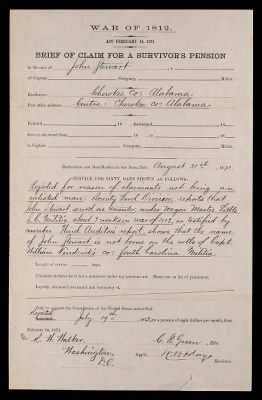 WAR OF 1812.
ACT FEBRUARY 14, 1871.
BRIEF OF CLAIM FOR A SURVIVOR'S PENSION
In the case of John Stewart
of Captain Company, Militia
Residence: Cherokee Co: Alabama
Post office address: Centre: Cherokee Co: Alabama
Enlisted 18 Discharged 18
Declaration and identification in due form, filed August 31st, 1871.
SERVICE FOR SIXTY DAYS SHOWN AS FOLLOWS:
Rejected for reason of claimants not being an
enlisted man. Bounty Land Division reports that
John Stewart served as teamster, under Wagon Master
S.C. Militia about 3 weeks in war of 1812, as testified by
Third Auditors report shows that the name
of John Stewart is not borne on the rolls of Capt.
William Kendrick's co: South Carolina Militia.
Length of service days.
Declares he is not a pensioner under any previous act. Name not on list of pensioners.
Loyalty
Oath to support the Constitution of the United States subscribed
Rejected July 19th 1872, to a pension of eight dollars per month, from
February 14, 1871.
W. Walker, C. E. Green
Washington, App'n.
D.C. Reviewer.